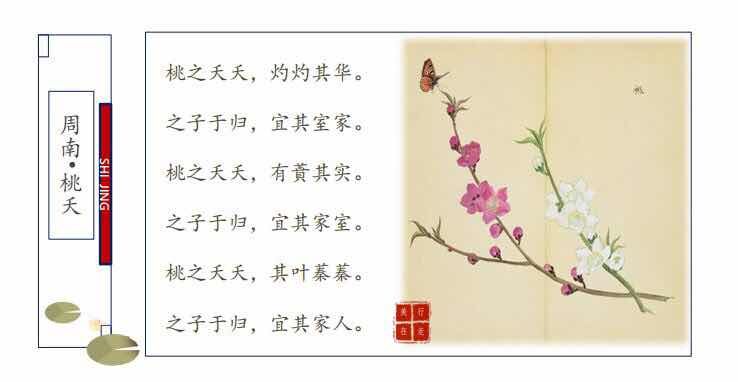 周南·桃夭
SHI JING
桃之夭夭，灼灼其华。
之子于归，宜其室家。
桃之夭夭，有蕡其实。
之子于归，宜其家室。
桃之夭夭，其叶蓁蓁。
之子于归，宜其家人。
桃
美行
在走